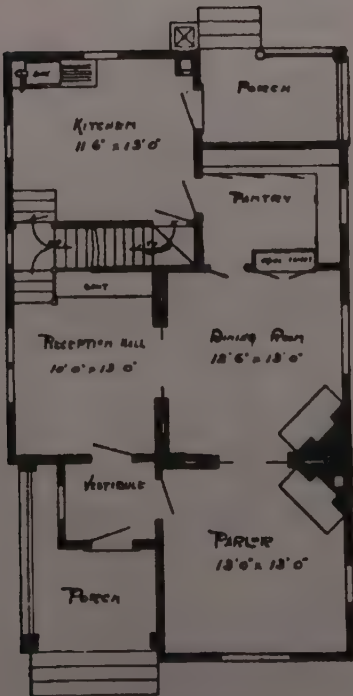 PORCH
KITCHEN
11'6" x 13'0"
PANTRY
SEAT
RECEPTION HALL
10'0" x 13'0"
DINING ROOM
12'6" x 13'0"
VESTIBULE
PARLOR
13'0" x 13'0"
PORCH